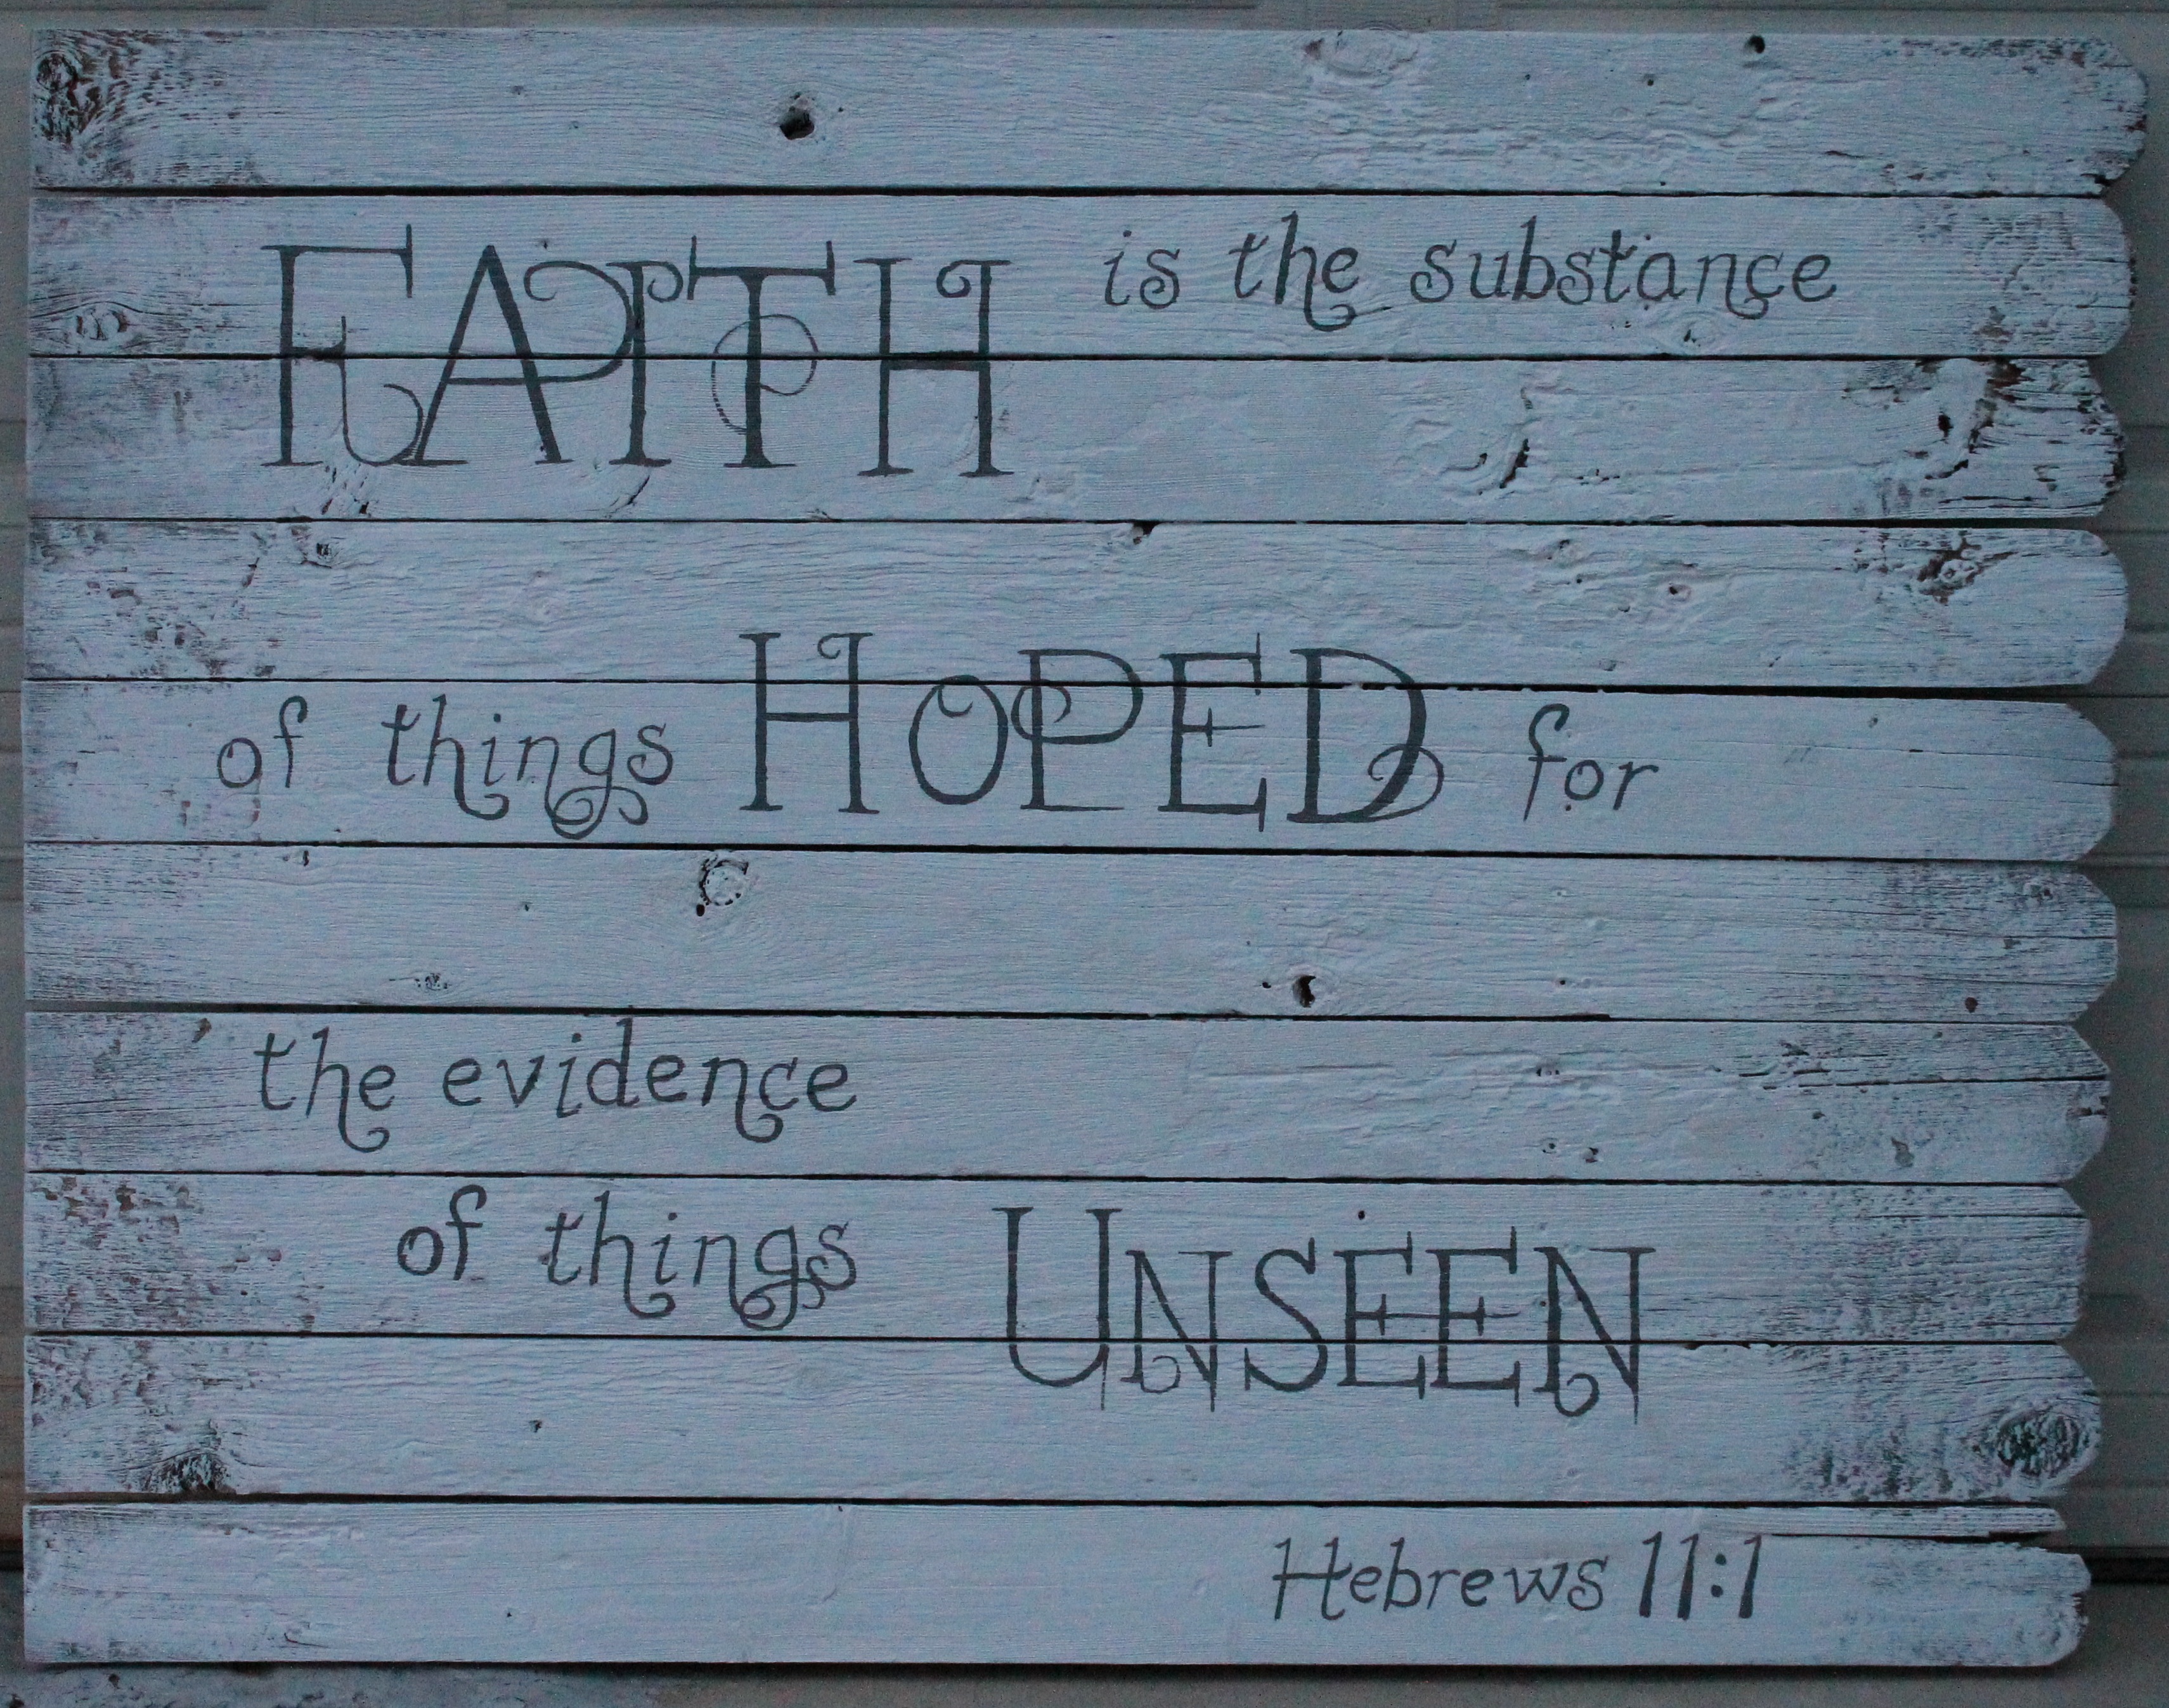 FAITH is the substance
of things HOPED for
the evidence
of things UNSEEN
Hebrews 11:1